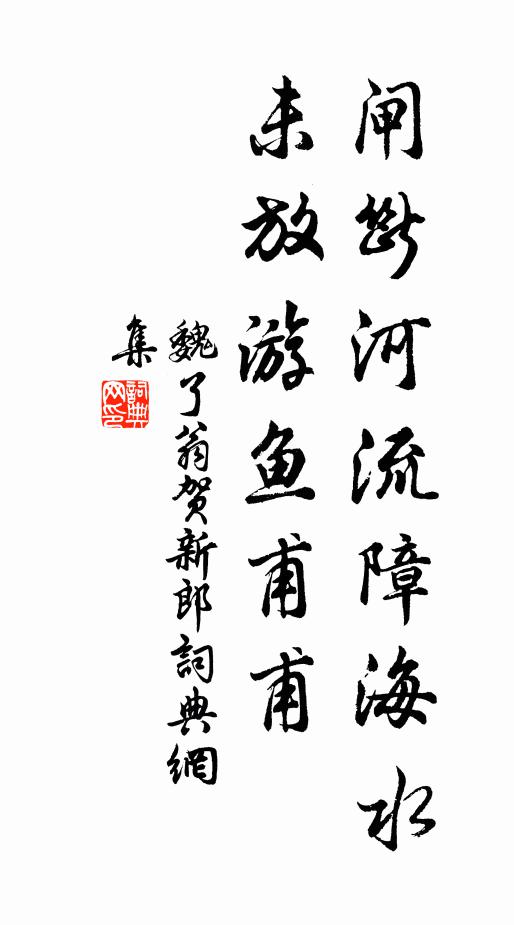 闸断河流障海水
未放游鱼甫甫
魏了翁贺新郎詞典網
集
詞典网印